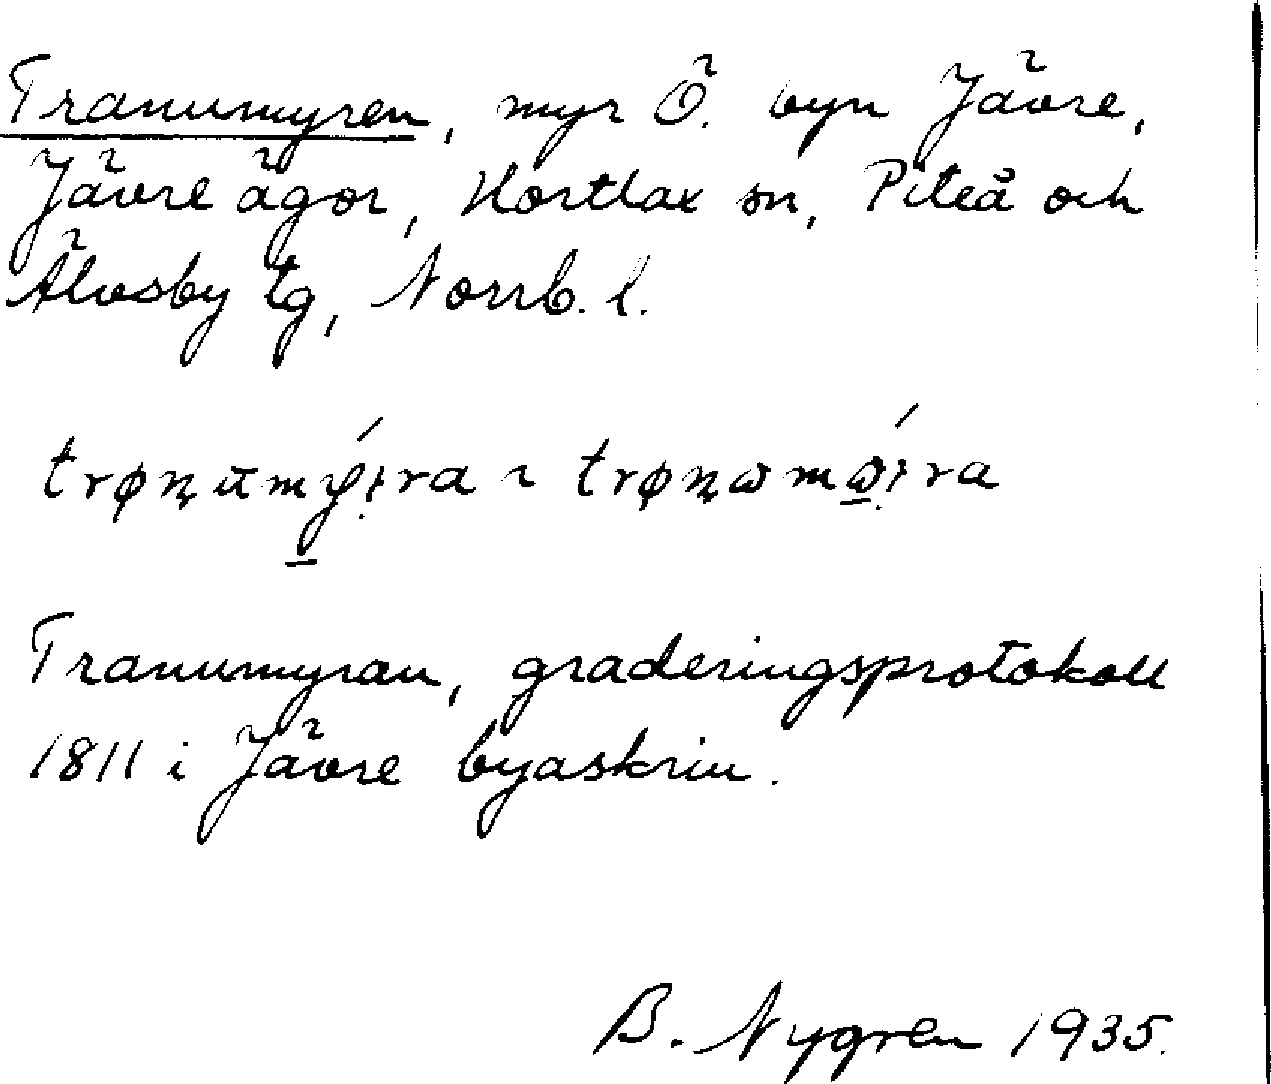 Tranumyren, myr Ö. byn Jävre,
Jävre ägor, Hortlax sn, Piteå och
Älvsby tg, Norrb. l.
Tranumyran, graderingsprotokoll
1811 i Jävre byaskrin.
B. Nygren 1935.